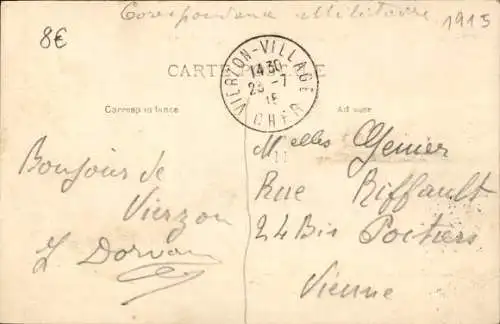 Correspondance Militaire
1915
8€
CARTE POSTALE
VIERZON-VILLAGE
1430
23 -7
15
CHER
Correspondance
Adresse
Bonjour de
Vierzon
Melles Genier
Rue Riffault
24 Bis Poitiers
Vienne